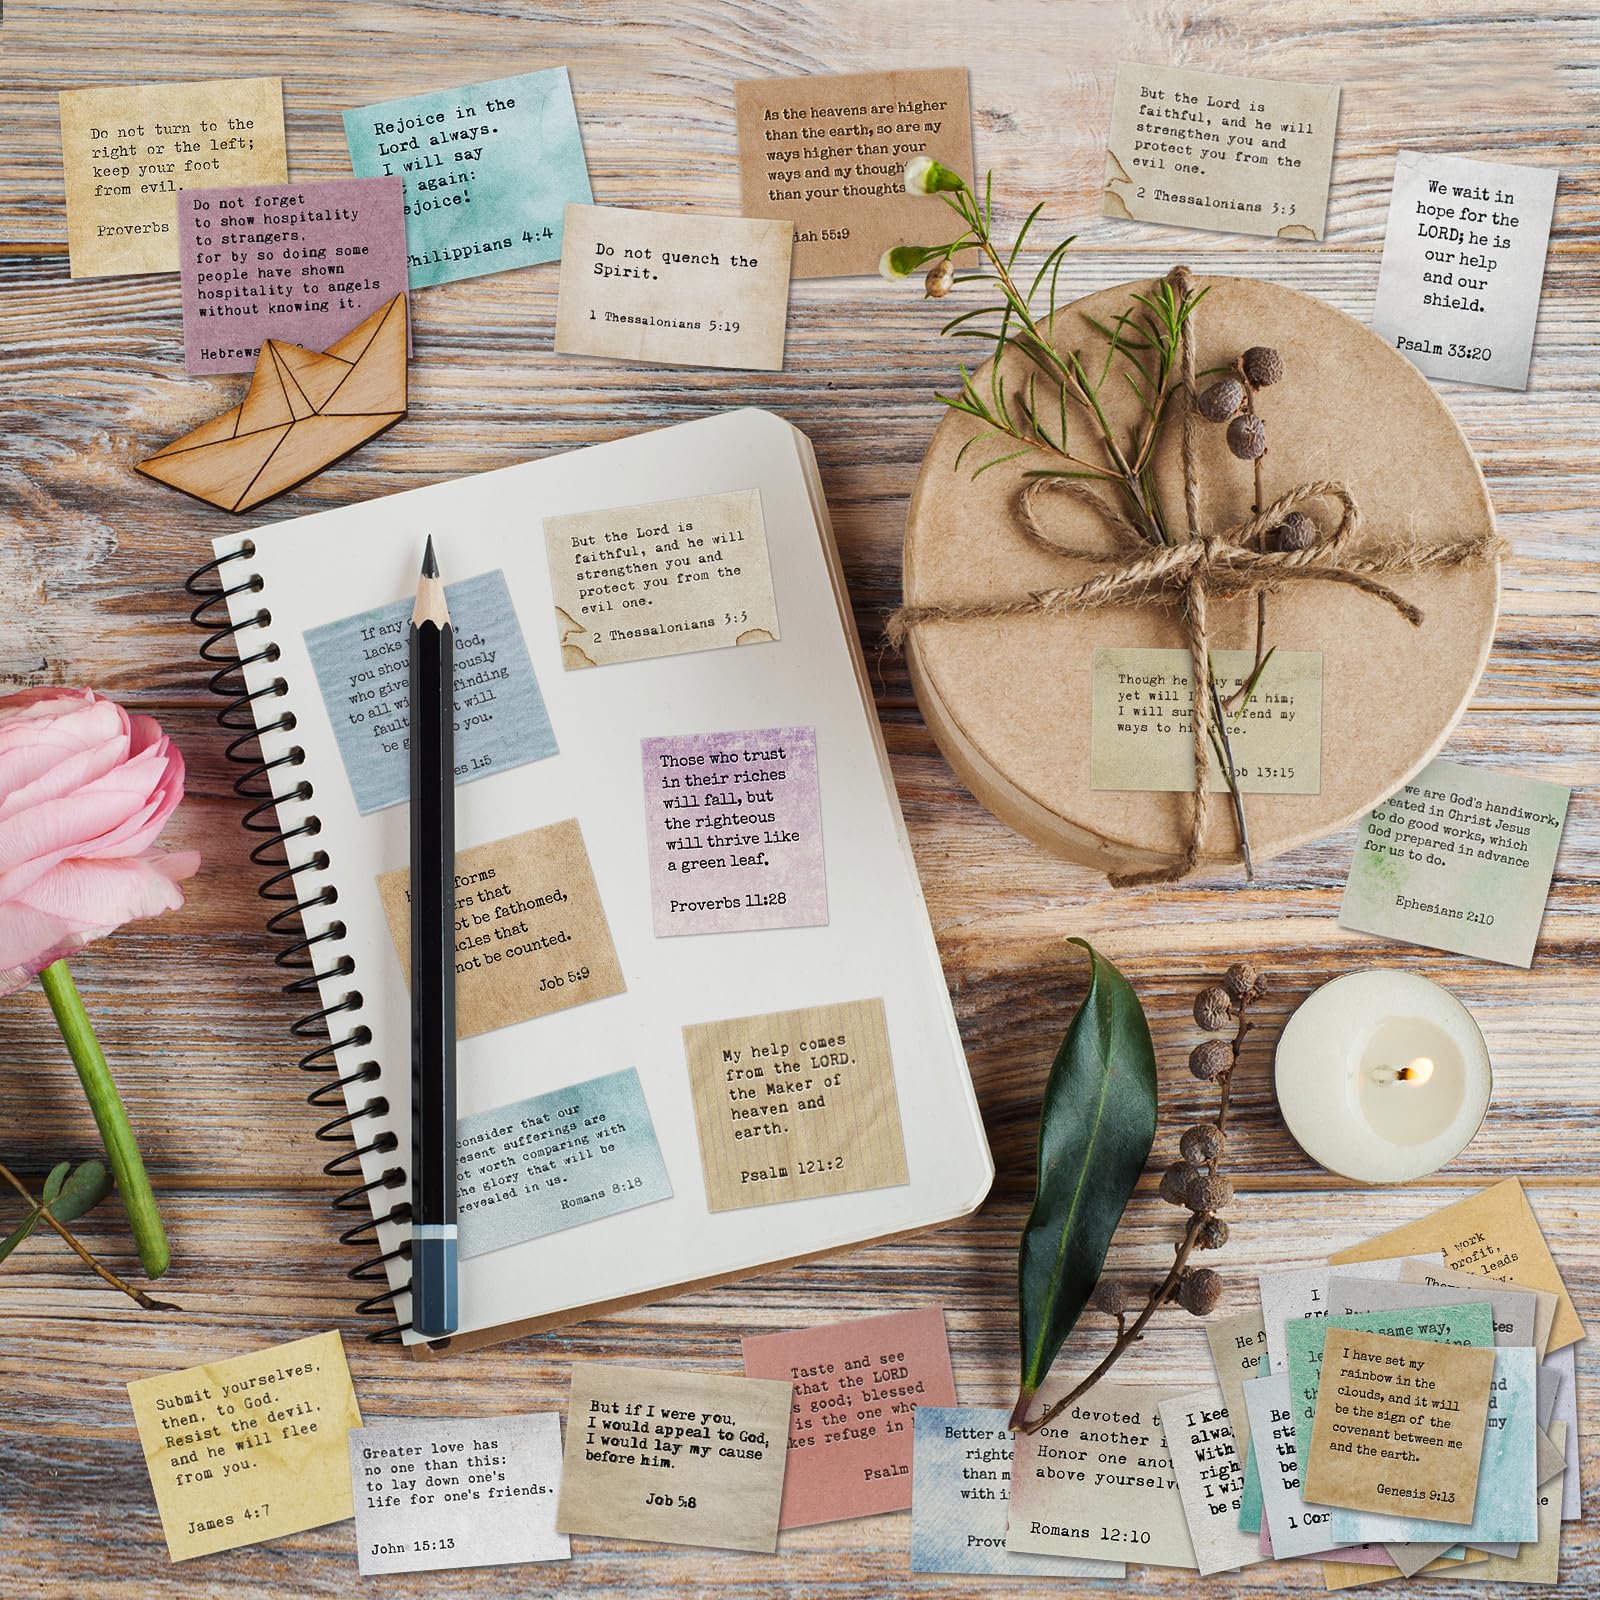 Do not turn to the
right or the left;
keep your foot
from evil.
Proverbs
Rejoice in the
Lord always.
I will say
again:
ejoice!
Philippians 4:4
Do not forget
to show hospitality
to strangers,
for by so doing some
people have shown
hospitality to angels
without knowing it.
Hebrews
Do not quench the
Spirit.
1 Thessalonians 5:19
As the heavens are higher
than the earth, so are my
ways higher than your
ways and my though
than your thoughts
iah 55:9
But the Lord is
faithful, and he will
strengthen you and
protect you from the
evil one.
2 Thessalonians 3:3
We wait in
hope for the
LORD; he is
our help
and our
shield.
Psalm 33:20
But the Lord is
faithful, and he will
strengthen you and
protect you from the
evil one.
2 Thessalonians 3:3
If any
lacks God,
you shou rously
who give finding
to all wi t will
fault o you.
be g
es 1:5
Those who trust
in their riches
will fall, but
the righteous
will thrive like
a green leaf.
Proverbs 11:28
forms
ers that
ot be fathomed,
acles that
not be counted.
Job 5:9
My help comes
from the LORD,
the Maker of
heaven and
earth.
Psalm 121:2
consider that our
esent sufferings are
ot worth comparing with
he glory that will be
revealed in us.
Romans 8:18
Though he ay me
yet will I n him;
I will sur defend my
ways to hi face.
Job 13:15
we are God's handiwork,
reated in Christ Jesus
to do good works, which
God prepared in advance
for us to do.
Ephesians 2:10
Submit yourselves,
then, to God.
Resist the devil,
and he will flee
from you.
James 4:7
Greater love has
no one than this:
to lay down one's
life for one's friends.
John 15:13
But if I were you,
I would appeal to God;
I would lay my cause
before him.
Job 5:8
Taste and see
that the LORD
s good; blessed
is the one who
kes refuge in
Psalm
Better a
righte
than m
with i
Prove
devoted t
one another i
Honor one anot
above yourselv
Romans 12:10
I kee
alwa
With
righ
I wil
be s
He f
Be
sta
th
be
be
1 Cor
work
profit,
leads
same way,
I have set my
rainbow in the
clouds, and it will
be the sign of the
covenant between me
and the earth.
Genesis 9:13